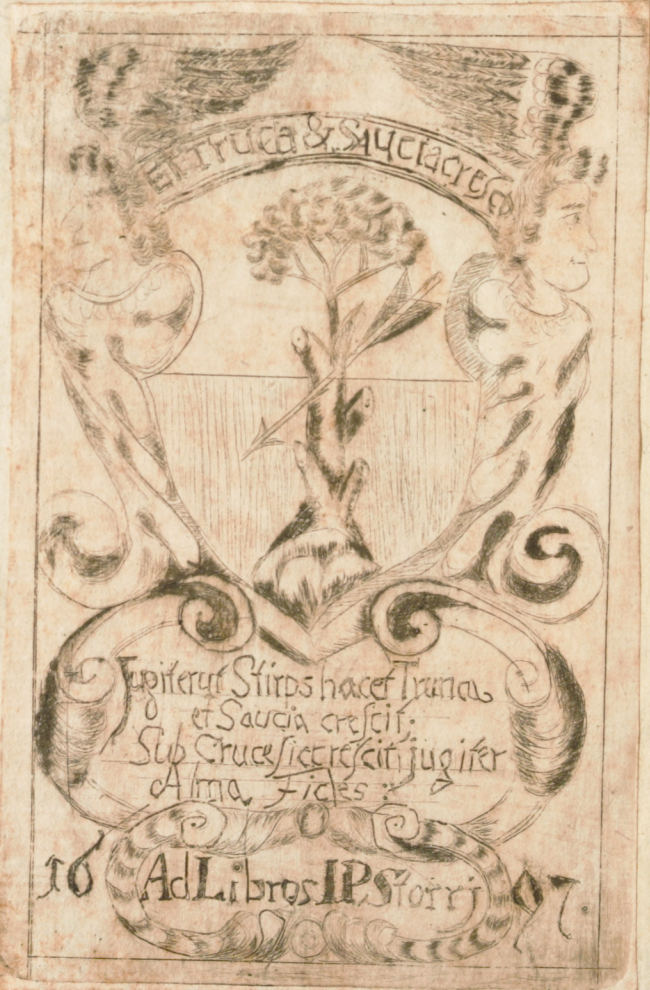 et truca & Saucia cresco
Jugiter ut Stirps hacet Trunca
et Saucia crescit:
Sub Cruce sic crescit jugiter
Alma Fides :
16 Ad Libros IP. Storri 97.